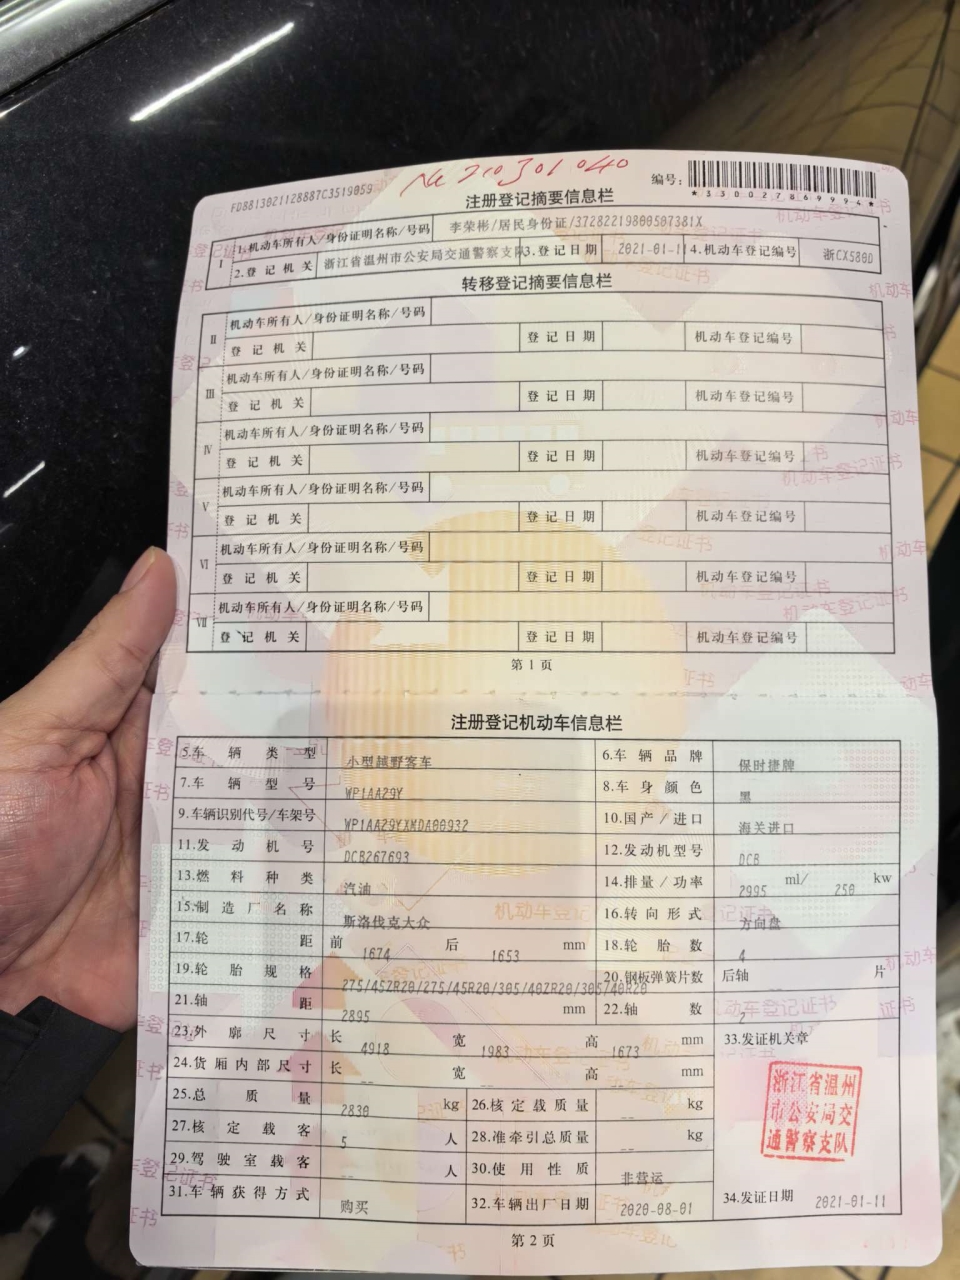 FD8813021128887C3519059
№ 210301040
编号:
*330027869994*
注册登记摘要信息栏
Ⅰ
1.机动车所有人/身份证明名称/号码 李荣彬/居民身份证/37282219800507381X
2.登记机关 浙江省温州市公安局交通警察支队 3.登记日期 2021-01-11 4.机动车登记编号 浙CX580D
转移登记摘要信息栏
Ⅱ
机动车所有人/身份证明名称/号码
登记机关 登记日期 机动车登记编号
Ⅲ
机动车所有人/身份证明名称/号码
登记机关 登记日期 机动车登记编号
Ⅳ
机动车所有人/身份证明名称/号码
登记机关 登记日期 机动车登记编号
Ⅴ
机动车所有人/身份证明名称/号码
登记机关 登记日期 机动车登记编号
Ⅵ
机动车所有人/身份证明名称/号码
登记机关 登记日期 机动车登记编号
Ⅶ
机动车所有人/身份证明名称/号码
登记机关 登记日期 机动车登记编号
第1页
注册登记机动车信息栏
5.车辆类型 小型越野客车 6.车辆品牌 保时捷牌
7.车辆型号 WP1AA29Y 8.车身颜色 黑
9.车辆识别代号/车架号 WP1AA29YXMDA00932 10.国产/进口 海关进口
11.发动机号 DCB267693 12.发动机型号 DCB
13.燃料种类 汽油 14.排量/功率 2995 ml/ 250 kw
15.制造厂名称 斯洛伐克大众 16.转向形式 方向盘
17.轮距 前 1674 后 1653 mm 18.轮胎数 4
19.轮胎规格 275/45ZR20/275/45R20/305/40ZR20/305/40R20 20.钢板弹簧片数 后轴 -- 片
21.轴距 2895 mm 22.轴数 2
23.外廓尺寸 长 4918 宽 1983 高 1673 mm 33.发证机关章
24.货厢内部尺寸 长 -- 宽 -- 高 -- mm
25.总质量 2830 kg 26.核定载质量 -- kg
27.核定载客 5 人 28.准牵引总质量 -- kg
29.驾驶室载客 -- 人 30.使用性质 非营运
31.车辆获得方式 购买 32.车辆出厂日期 2020-08-01 34.发证日期 2021-01-11
浙江省温州
市公安局交
通警察支队
第2页